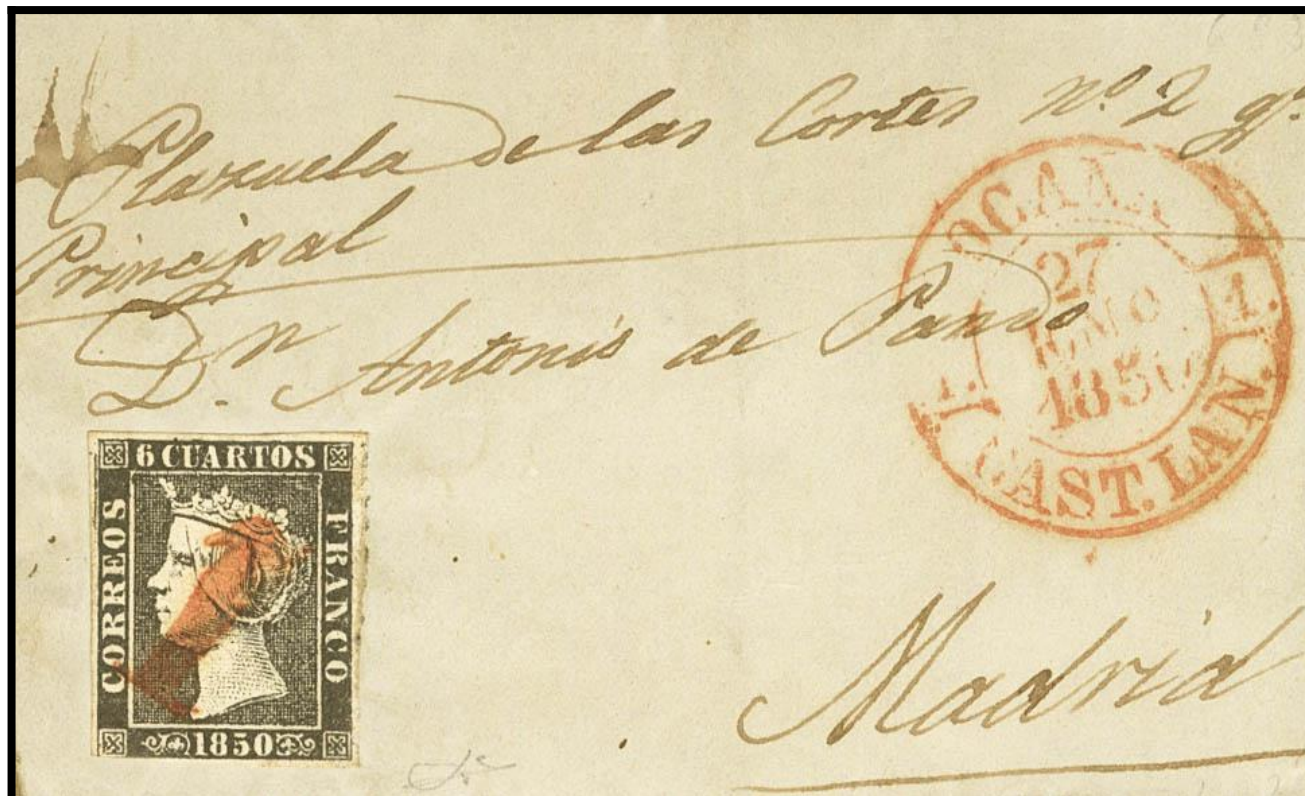 Plazuela de las Cortes nº 2 qº
Principal
Dn Antonio de Pando
OCAÑA
27
ENO
1850
CAST. LAN.
6 CUARTOS
CORREOS
FRANCO
1850
Madrid